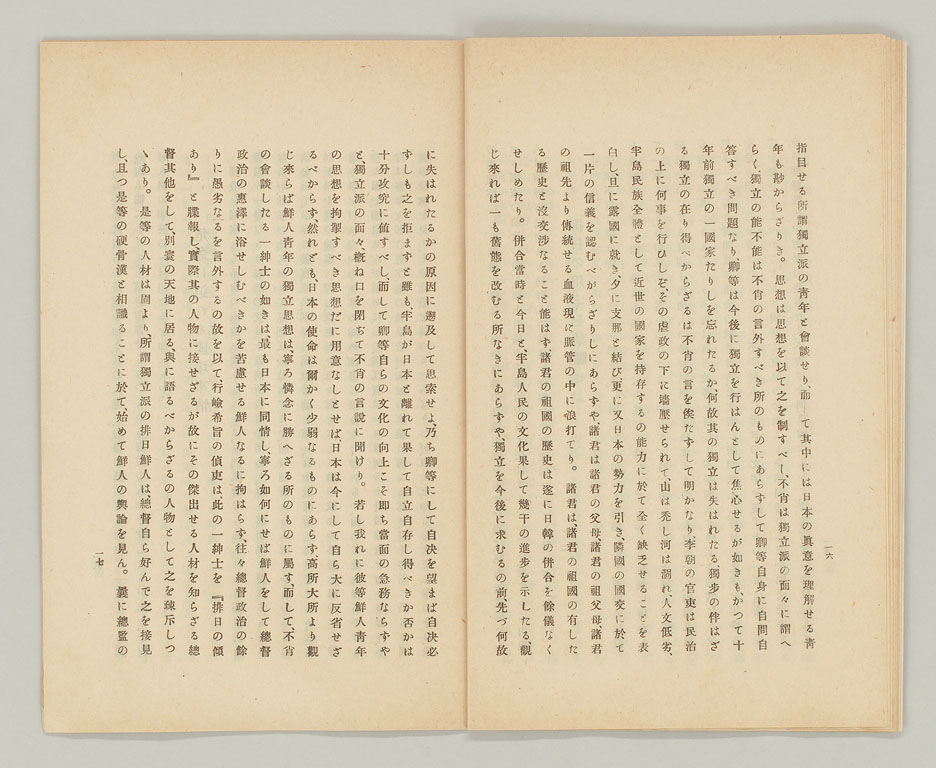 一六
指目せる所謂獨立派の靑年と會談せり、而して其中には日本の眞意を理解せる靑
年も尠からざりき。思想は思想を以て之を制すべし、不肖は獨立派の面々に謂へ
らく、獨立の能不能は不肖の言外すべき所のものにあらずして卿等自身に自問自
答すべき問題なり卿等は今後に獨立を行はんとして焦心せるが如きも、かつて十
年前獨立の一國家たりしを忘れたるか、何故其の獨立は失はれたる、獨步の件はざ
る獨立の在り得べからざるは不肖の言を俟たずして明かなり、李朝の官吏は民治
の上に何事を行ひしぞ、その虐政の下に壻壓せられて山は禿し河は涸れ、人文低劣、
半島民族全體として近世の國家を持存するの能力に於て全く缺乏せることを表
白し、旦に露國に就き、夕に支那と結び更に又日本の勢力を引き、隣國の國交に於て
一片の信義を認むべがらざりしにあらずや諸君は諸君の父母諸君の祖父母、諸君
の祖先より傳統せる血液現に脈管の中に浪打てり。諸君は、諸君の祖國の有した
る歷史と沒交涉なること能はず諸君の祖國の歷史は遂に日韓の併合を餘儀なく
せしめたり。併合當時と今日と、半島人民の文化果して幾干の進步を示したる、觀
じ來れば一も舊態を改むる所なきにあらずや、獨立を今後に求むるの前、先づ何故
に失はれたるかの原因に遡及して思索せよ、乃ち卿等にして自决を望まば自决必
ずしも之を拒まずと雖も、半島が日本と離れて果して自立自存し得べきか否かは
十分攻究に値すべし、而して卿等自らの文化の向上こそ即ち當面の急務ならずや
と、獨立派の面々、槪ね口を閉ぢて不肖の言說に聞けり。若し我れに彼等鮮人靑年
の思想を拘掣すべき思想だに用意なしとせば、日本は今にして自ら大に反省せざ
るべからず、然れども、日本の使命は爾かく少弱なるものにあらず、高所大所より觀
じ來らば鮮人靑年の獨立思想は寧ろ憐念に勝へざる所のものに屬す、而して、不肖
の會談したる一紳士の如きは、最も日本に同情し、寧ろ如何にせば鮮人をして總督
政治の惠澤に浴せしむべきかを苦慮せる鮮人なるに拘はらず、往々總督政治の餘
りに愚劣なるを言外するの故を以て、行嶮希旨の偵吏は此の一紳士を『排日の傾
あり』と牒報し、實際其の人物に接せざるが故にその傑出せる人材を知らざる總
督其他をして、別寰の天地に居る、與に語るべからざるの人物として之を疎斥しつ
ゝあり。是等の人材は固より、所謂獨立派の排日鮮人は、總督自ら好んで之を接見
し、且つ是等の硬骨漢と相識ることに於て始めて鮮人の輿論を見ん。曩に總監の
一七